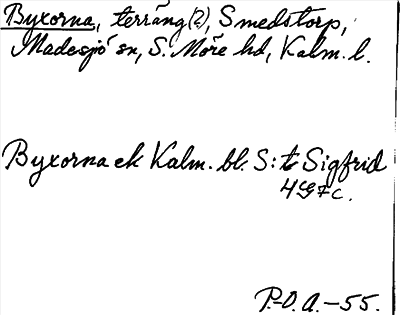 Byxorna, terräng(?), Smedstorp,
Madesjö sn, S. Möre hd, Kalm. l.
Byxorna ek Kalm. bl. S:t Sigfrid
4G7c.
P.O.A.-55.